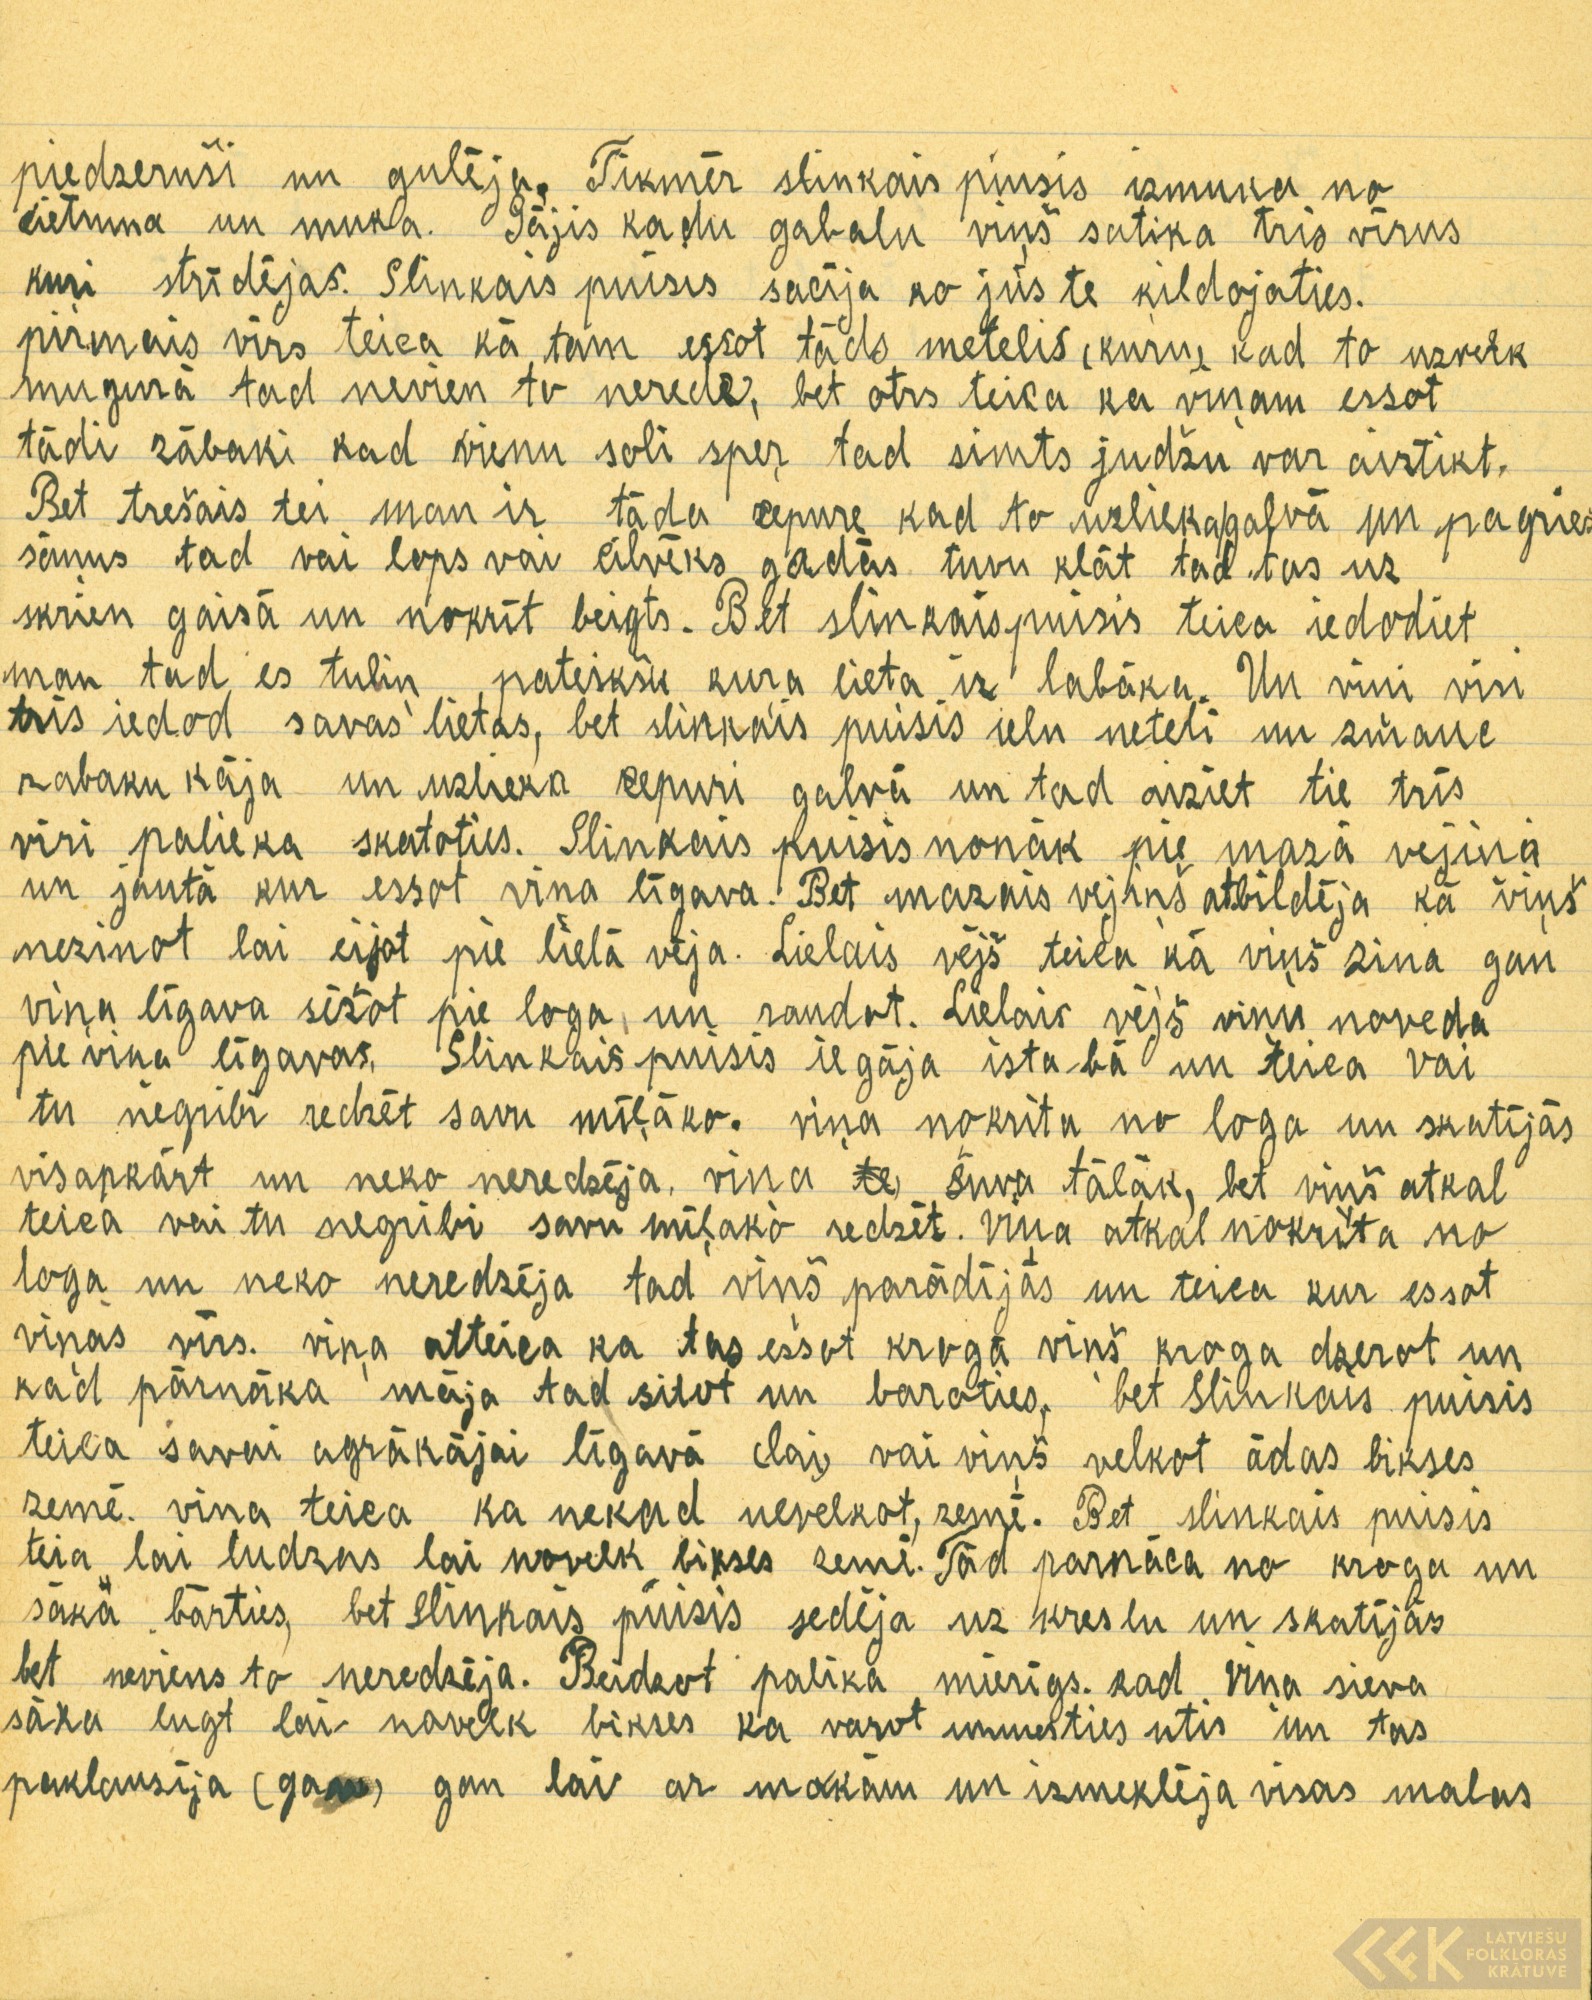 piedzeruši un gulēja. Tikmēr slinkais puisis izmuka no
cietuma un muka. Gājis kadu gabalu viņš satika trīs vīrus
kuri strīdējas. Slinkais puisis sacīja ko jūs te ķildojaties.
pirmais vīrs teica kā tam essot tāds metelis (kuru) kad to uzvelk
mugurā tad nevien to neredz, bet otrs teica ka viņam essot
tādi zābaki kad vienu soli sper tad simts judžu var aiztikt.
Bet trešais tei man ir tāda cepure kad to uzlieka galvā un pagriež
sānus tad vai lops vai cilvēks gadās tuvu klāt tad tas uz
skrien gaisā un nokrīt beigts. Bet slinkais puisis teica iedodiet
man tad es tuliņ pateiksu kura lieta ir labāka. Un viņi visi
trīs iedod savas lietas, bet slinkais puisis ielu neteli un zmauc
zabaku kāja un uzlieka cepuri galvā un tad aiziet tie trīs
vīri palieka skatoties. Slinkais puisis nonāk pie mazā vejiņa
un jautā kur essot viņa līgava. Bet mazais vejiņš atbildēja kā viņš
nezinot lai eijot pie lielā vēja. Lielais vējš teica kā viņš zina gan
viņa līgava sēžot pie loga un raudot. Lielais vējš viņu noveda
pie viņa līgavas. Slinkais puisis iegāja istabā un teica vai
tu negribi redzēt savu mīļāko. viņa nokrita no loga un skatījās
visapkārt un neko neredzēja. viņa te šuva tālāk, bet viņš atkal
teica vai tu negribi savu mīļako redzēt. Viņa atkal nokrita no
loga un neko neredzēja tad viņš parādījās un teica kur essot
viņas vīrs. viņa atteica ka tas essot kroga viņš kroga dzerot un
kad pārnāka māja tad sitot un baroties, bet Slinkais puisis
teica savai agrākājai līgavā (lai) vai viņš velkot ādas bikses
zemē. viņa teica ka nekad nevelkot zemē. Bet slinkais puisis
teia lai ludzas lai novelk bikses zemē. Tad parnāca no kroga un
sākā bārties, bet Slinkais puisis sedēja uz kreslu un skatījās
bet neviens to neredzēja. Beidzot palika mierīgs. kad viņa sieva
sāka lugt lai novelk bikses ka varot utis un tas
paklausīja (gan) gan lai ar mokām un izmeklēja visas malas
LATVIEŠU
FOLKLORAS
KRĀTUVE